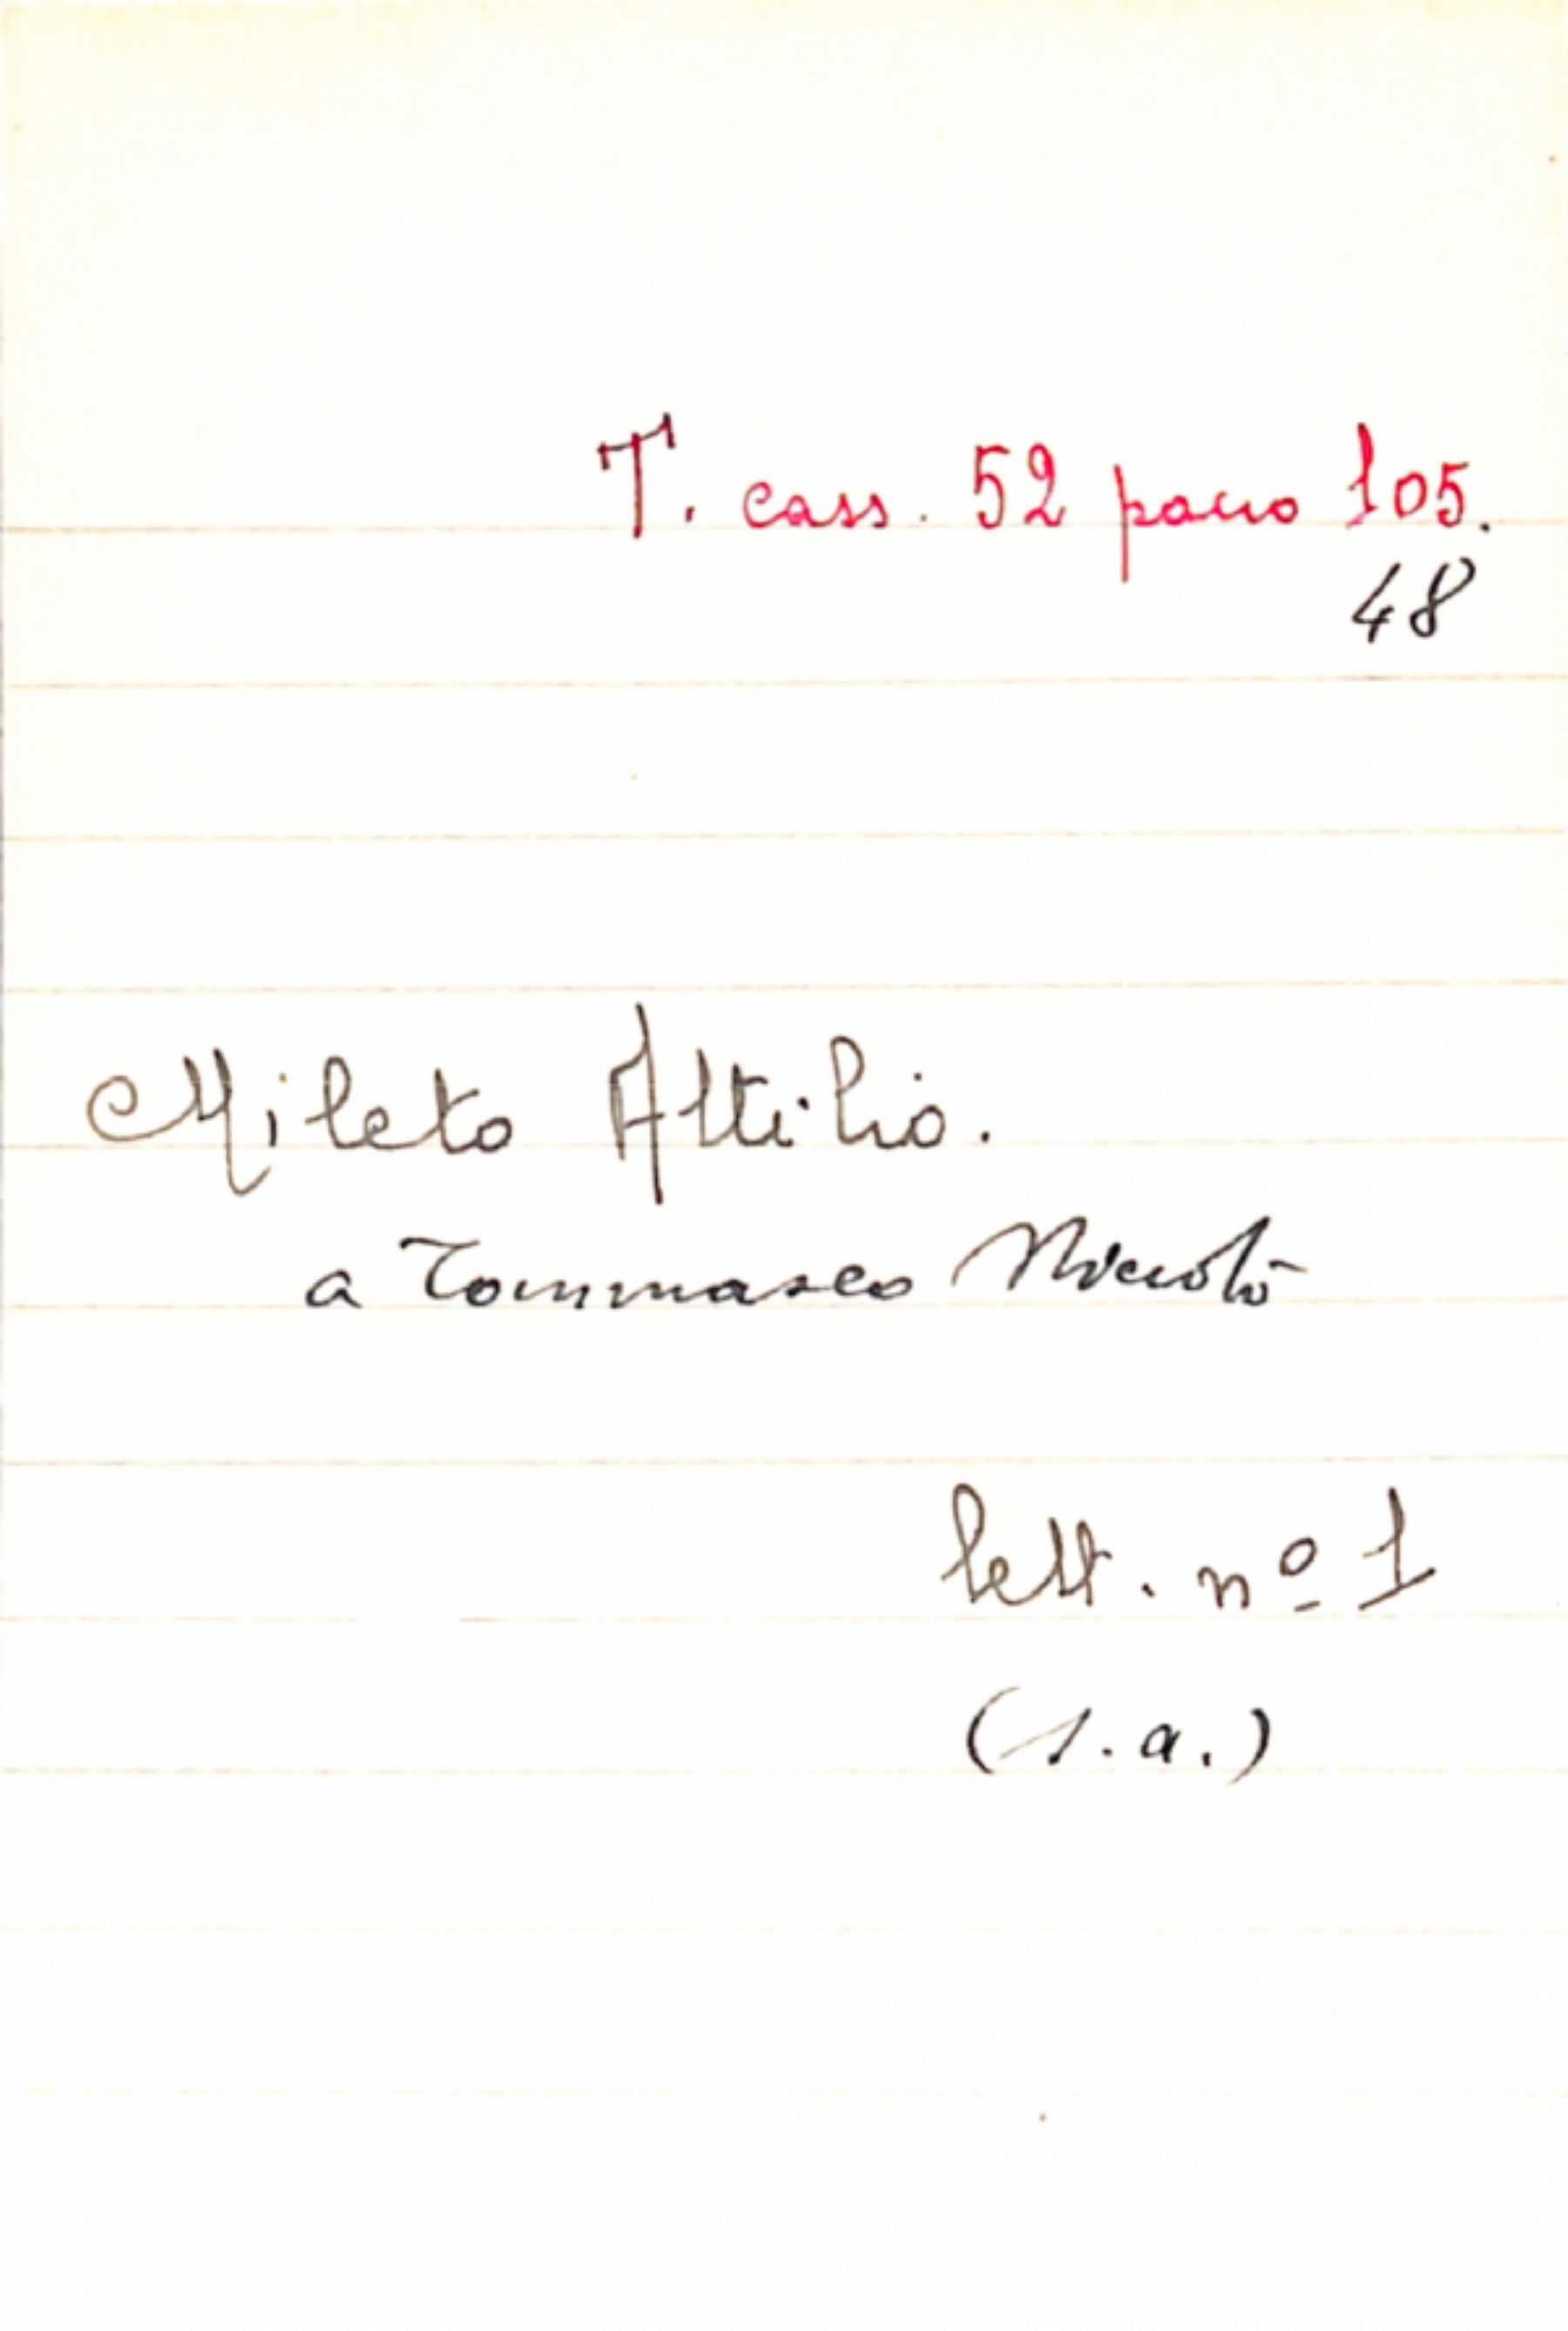 T. cass. 52 pacco 105.
48
Mileto Attilio.
a Tommaseo Niccolò
lett. nº 1
(s.a.)